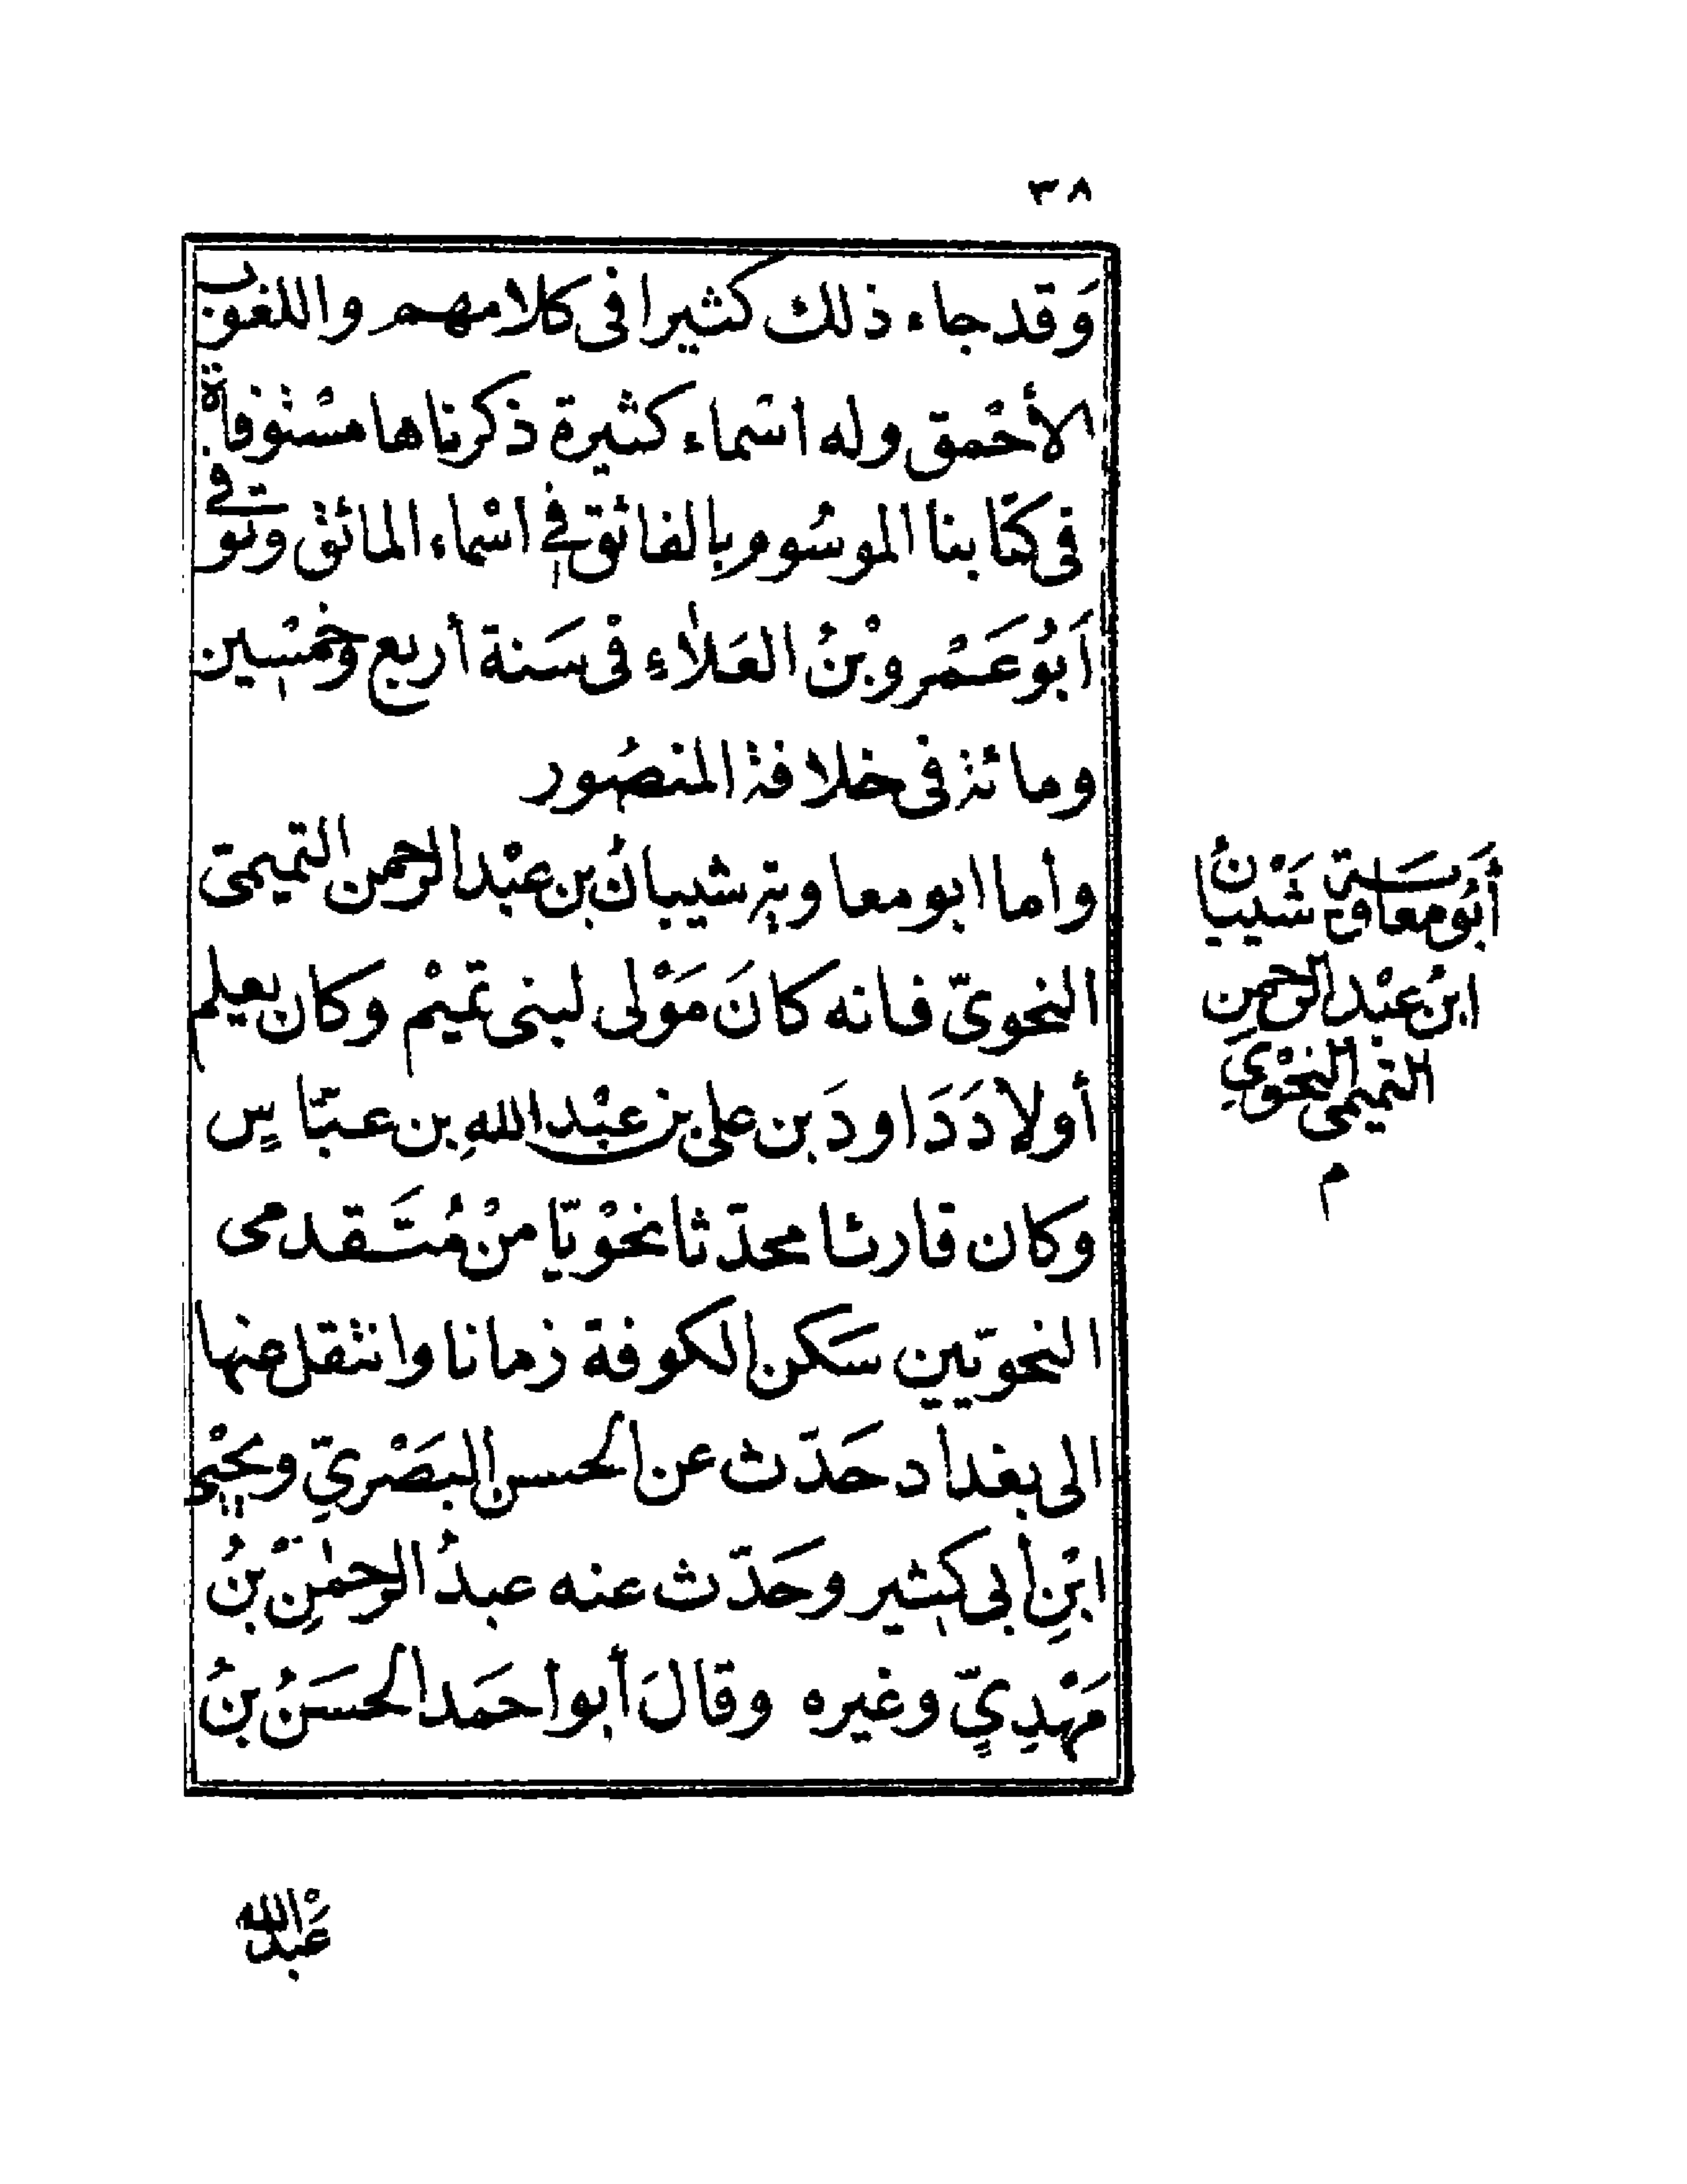 ٣٨
وَقد جاء ذلك كثيرا فى كلامهم واللغوب
الأحْمق وله اسماء كثيرة ذكرناها مسْتوفاة
فى كتابنا الموسُوم بالفائق فى اسْماء المائق وتوفى
أَبُو عَمْرو بْنُ العَلاءِ فى سَنة أربع وخمْسين
ومائة فى خلافة المنصُور
وأما ابو معاوية شيبانُ بن عبْد الرحمن التميمىّ
النحوىّ فانه كانَ مَوْلى لبنى تميْم وكان يعلم
أولادَ دَاودَ بن على بن عبْد اللهِ بن عبّاسٍ
وكان قارئا محدّثا نحْويّا منْ مُتَقدمى
النحويّين سَكن الكوفة زمانا وانتقل عنها
الى بغداد حَدّث عن الحسن البَصْرىِّ ويحْيى
ابْنِ أبى كثير وحَدّث عنه عبدُ الرحمٰنِ بْنُ
مَهْدِىٍّ وغيره وقالَ أبو احمَد الحسَنُ بنُ
أَبُو معَاوية شَيْبانُ
ابنُ عبْد الرحمن
التميمى النحْوىّ
م
عَبْد الله